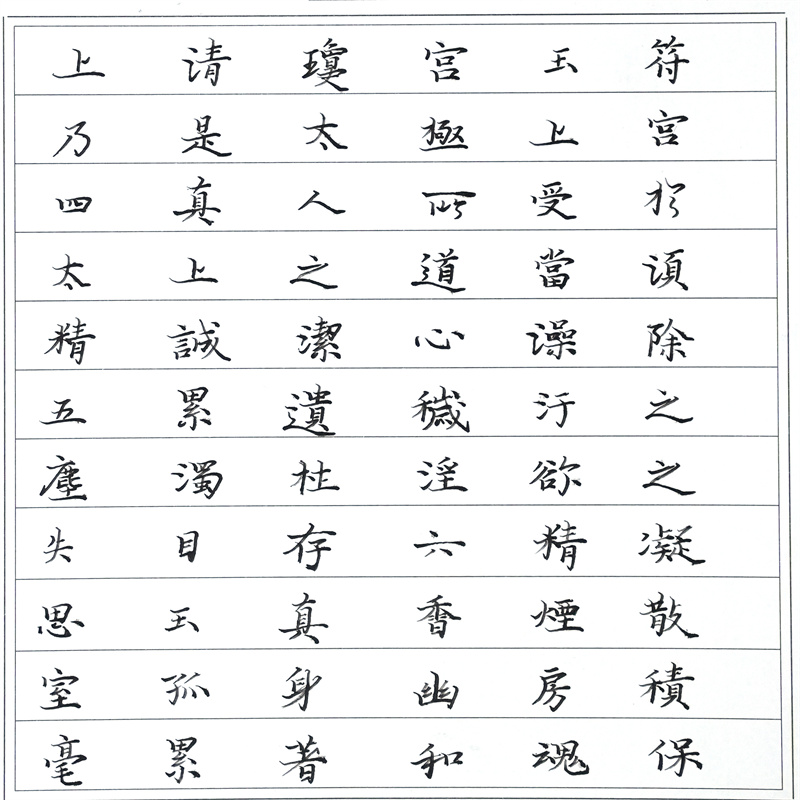 上清瓊宮玉符
乃是太極上宮
四真人所受於
太上之道當須
精誠潔心澡除
五累遺穢汙之
塵濁杜淫欲之
失目存六精凝
思玉真香煙散
室孤身幽房積
毫累著和魂保